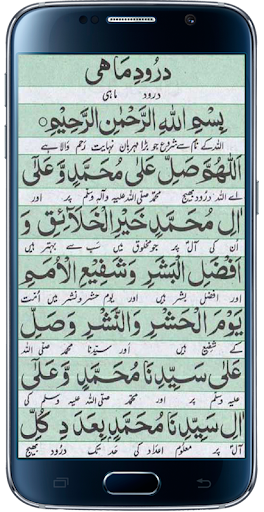 درُودِ مَاهِی
درود ماہی
بِسْمِ اللهِ الرَّحْمٰنِ الرَّحِيْمِ
اللہ کے نام سے شروع جو بڑا مہربان نہایت رحم والا ہے
اَللّٰهُمَّ صَلِّ عَلٰى مُحَمَّدٍ وَّعَلٰى
اے اللہ درُود بھیج محمد صلی اللہ علیہ وآلہ وسلم پر اور
اٰلِ مُحَمَّدٍ خَيْرِ الْخَلَآئِقِ وَ
ان کی آل پر جو مخلوق میں سب سے بہتر ہیں
اَفْضَلِ الْبَشَرِ وَشَفِيْعِ الْاُمَمِ
اور افضل بشر ہیں اور یوم حشر و نشر میں اُمت
يَوْمَ الْحَشْرِ وَالنَّشْرِ وَصَلِّ
کے شفیع ہیں اور سیدنا محمد صلی اللہ
عَلٰى سَيِّدِنَا مُحَمَّدٍ وَّعَلٰى
علیہ وسلم پر اور سیدنا محمد صلی اللہ علیہ وسلم کی
اٰلِ سَيِّدِنَا مُحَمَّدٍ بِعَدَدِ كُلِّ
آل پر معلوم اعداد کی حد تک درود بھیج